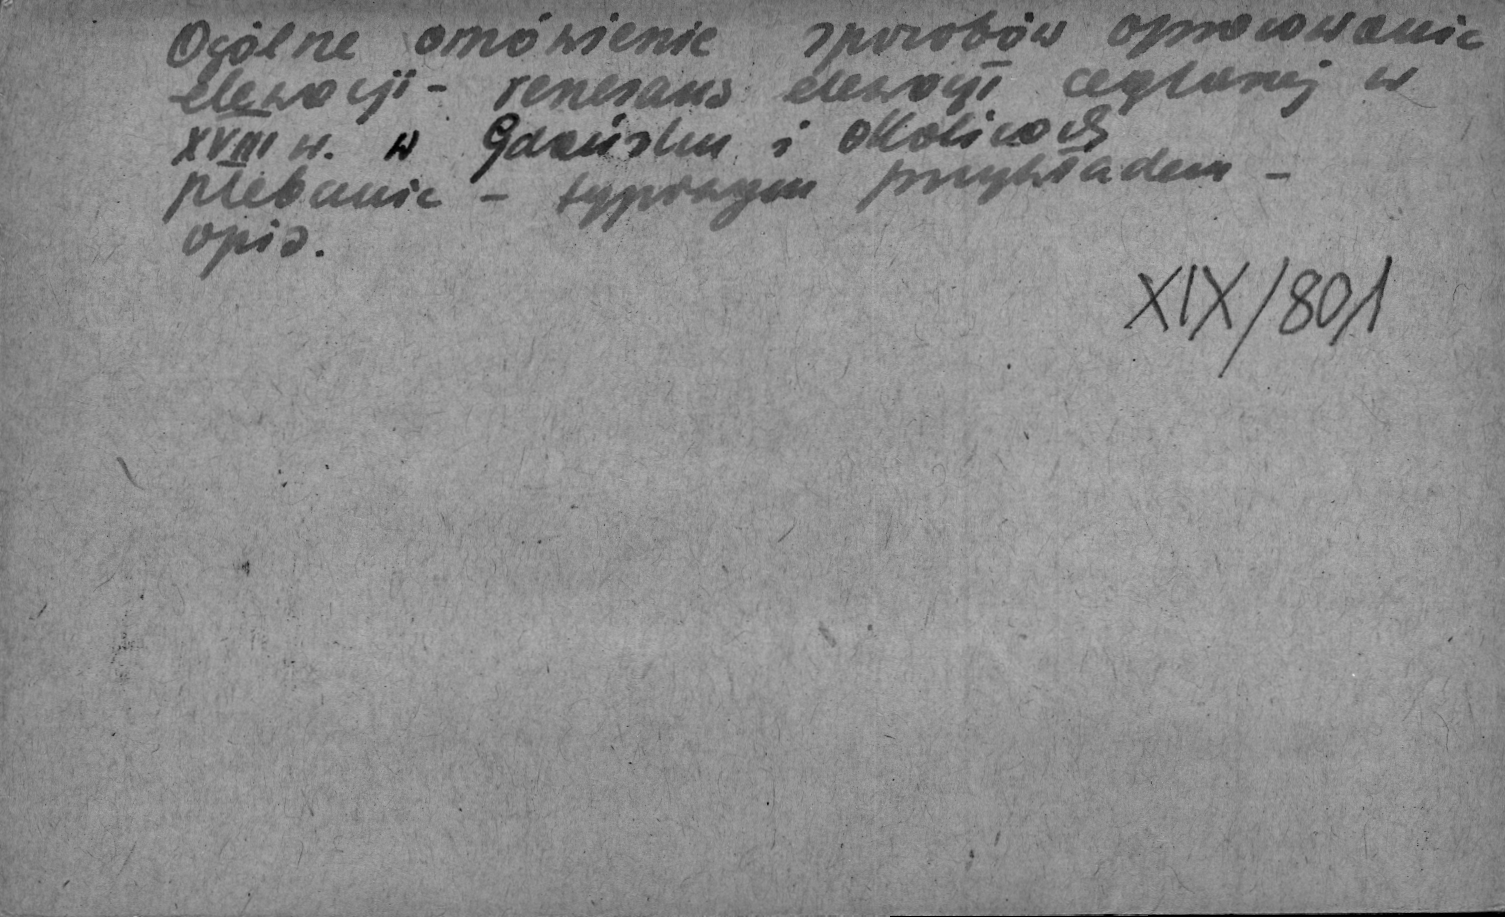 Ogólne omówienie sposobów opracowanie
elewacji - renesans elewacji ceglanej w
XVIII w. w Gdańsku i okolicach
plebanie - typowym przykładem -
opis.
XIX/801